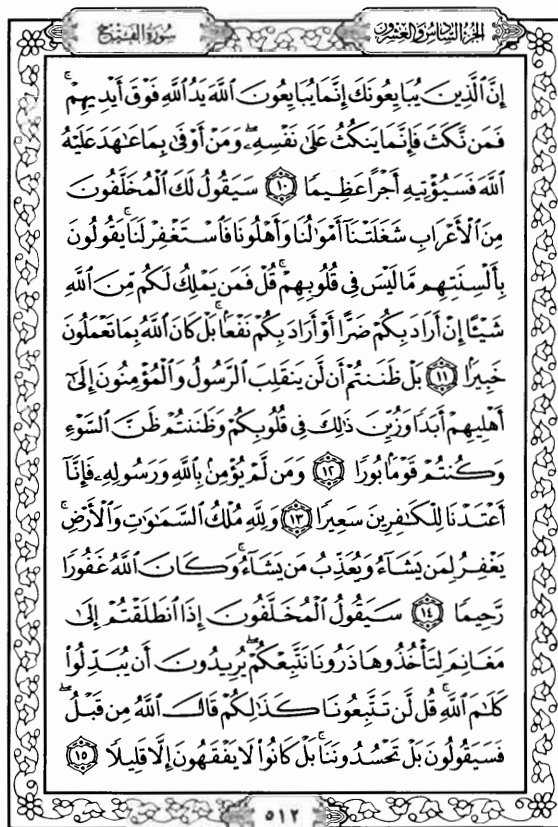 الجزء السادس والعشرون
سورة الفتح
إِنَّ ٱلَّذِينَ يُبَايِعُونَكَ إِنَّمَا يُبَايِعُونَ ٱللَّهَ يَدُ ٱللَّهِ فَوْقَ أَيْدِيهِمْۚ
فَمَن نَّكَثَ فَإِنَّمَا يَنكُثُ عَلَىٰ نَفْسِهِۦۖ وَمَنْ أَوْفَىٰ بِمَا عَٰهَدَ عَلَيْهُ
ٱللَّهَ فَسَيُؤْتِيهِ أَجْرًا عَظِيمًا ١٠ سَيَقُولُ لَكَ ٱلْمُخَلَّفُونَ
مِنَ ٱلْأَعْرَابِ شَغَلَتْنَآ أَمْوَٰلُنَا وَأَهْلُونَا فَٱسْتَغْفِرْ لَنَاۚ يَقُولُونَ
بِأَلْسِنَتِهِم مَّا لَيْسَ فِى قُلُوبِهِمْۚ قُلْ فَمَن يَمْلِكُ لَكُم مِّنَ ٱللَّهِ
شَيْـًٔا إِنْ أَرَادَ بِكُمْ ضَرًّا أَوْ أَرَادَ بِكُمْ نَفْعَۢاۚ بَلْ كَانَ ٱللَّهُ بِمَا تَعْمَلُونَ
خَبِيرَۢا ١١ بَلْ ظَنَنتُمْ أَن لَّن يَنقَلِبَ ٱلرَّسُولُ وَٱلْمُؤْمِنُونَ إِلَىٰٓ
أَهْلِيهِمْ أَبَدًا وَزُيِّنَ ذَٰلِكَ فِى قُلُوبِكُمْ وَظَنَنتُمْ ظَنَّ ٱلسَّوْءِ
وَكُنتُمْ قَوْمَۢا بُورًا ١٢ وَمَن لَّمْ يُؤْمِنۢ بِٱللَّهِ وَرَسُولِهِۦ فَإِنَّآ
أَعْتَدْنَا لِلْكَٰفِرِينَ سَعِيرًا ١٣ وَلِلَّهِ مُلْكُ ٱلسَّمَٰوَٰتِ وَٱلْأَرْضِۚ
يَغْفِرُ لِمَن يَشَآءُ وَيُعَذِّبُ مَن يَشَآءُۚ وَكَانَ ٱللَّهُ غَفُورًا
رَّحِيمًا ١٤ سَيَقُولُ ٱلْمُخَلَّفُونَ إِذَا ٱنطَلَقْتُمْ إِلَىٰ
مَغَانِمَ لِتَأْخُذُوهَا ذَرُونَا نَتَّبِعْكُمْۖ يُرِيدُونَ أَن يُبَدِّلُوا۟
كَلَٰمَ ٱللَّهِۚ قُل لَّن تَتَّبِعُونَا كَذَٰلِكُمْ قَالَ ٱللَّهُ مِن قَبْلُۖ
فَسَيَقُولُونَ بَلْ تَحْسُدُونَنَاۚ بَلْ كَانُوا۟ لَا يَفْقَهُونَ إِلَّا قَلِيلًا ١٥
٥١٢